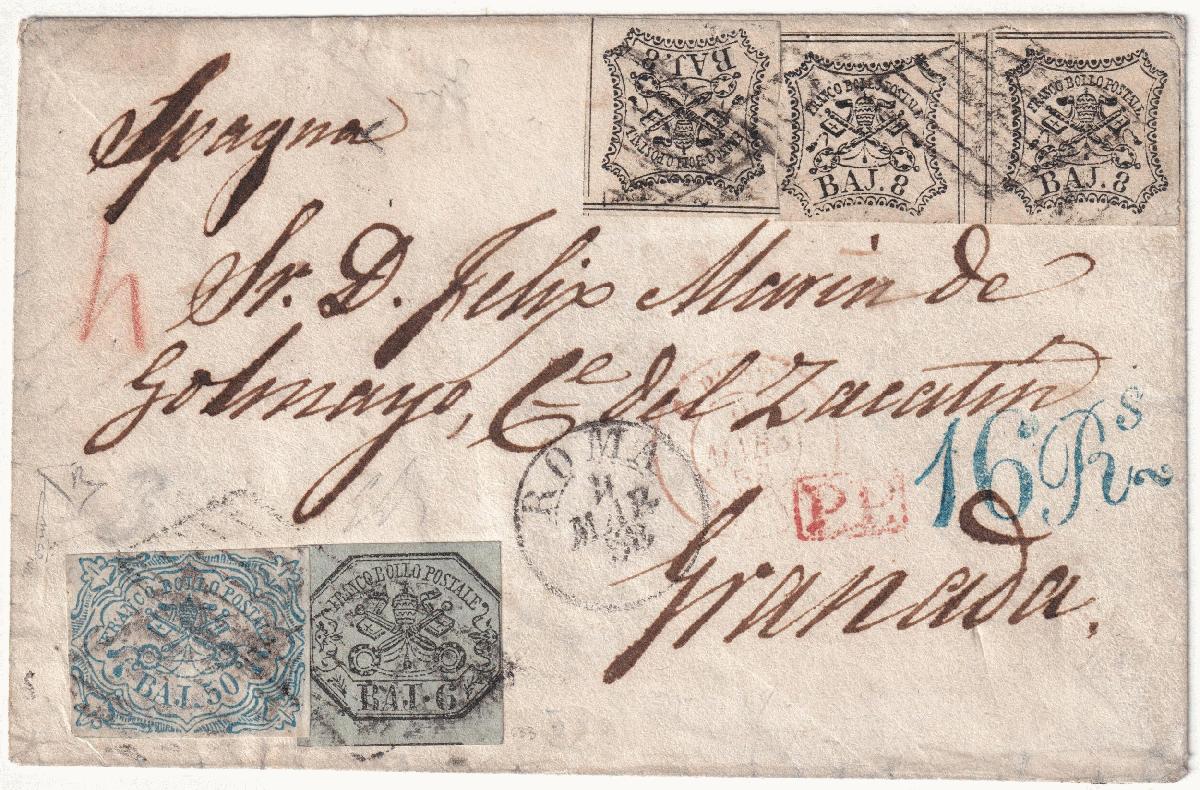 Spagna
BAJ. 8
FRANCO BOLLO POSTALE
FRANCO BOLLO POSTALE
BAJ. 8
FRANCO BOLLO POSTALE
BAJ. 8
Sr. D. Felix Marin de
Golmayo, Ce del Zacatin
ROMA
MAR
MARS
P.P.
16 Rs
Granada.
FRANCO BOLLO POSTALE
BAJ. 50
FRANCO BOLLO POSTALE
BAJ. 6